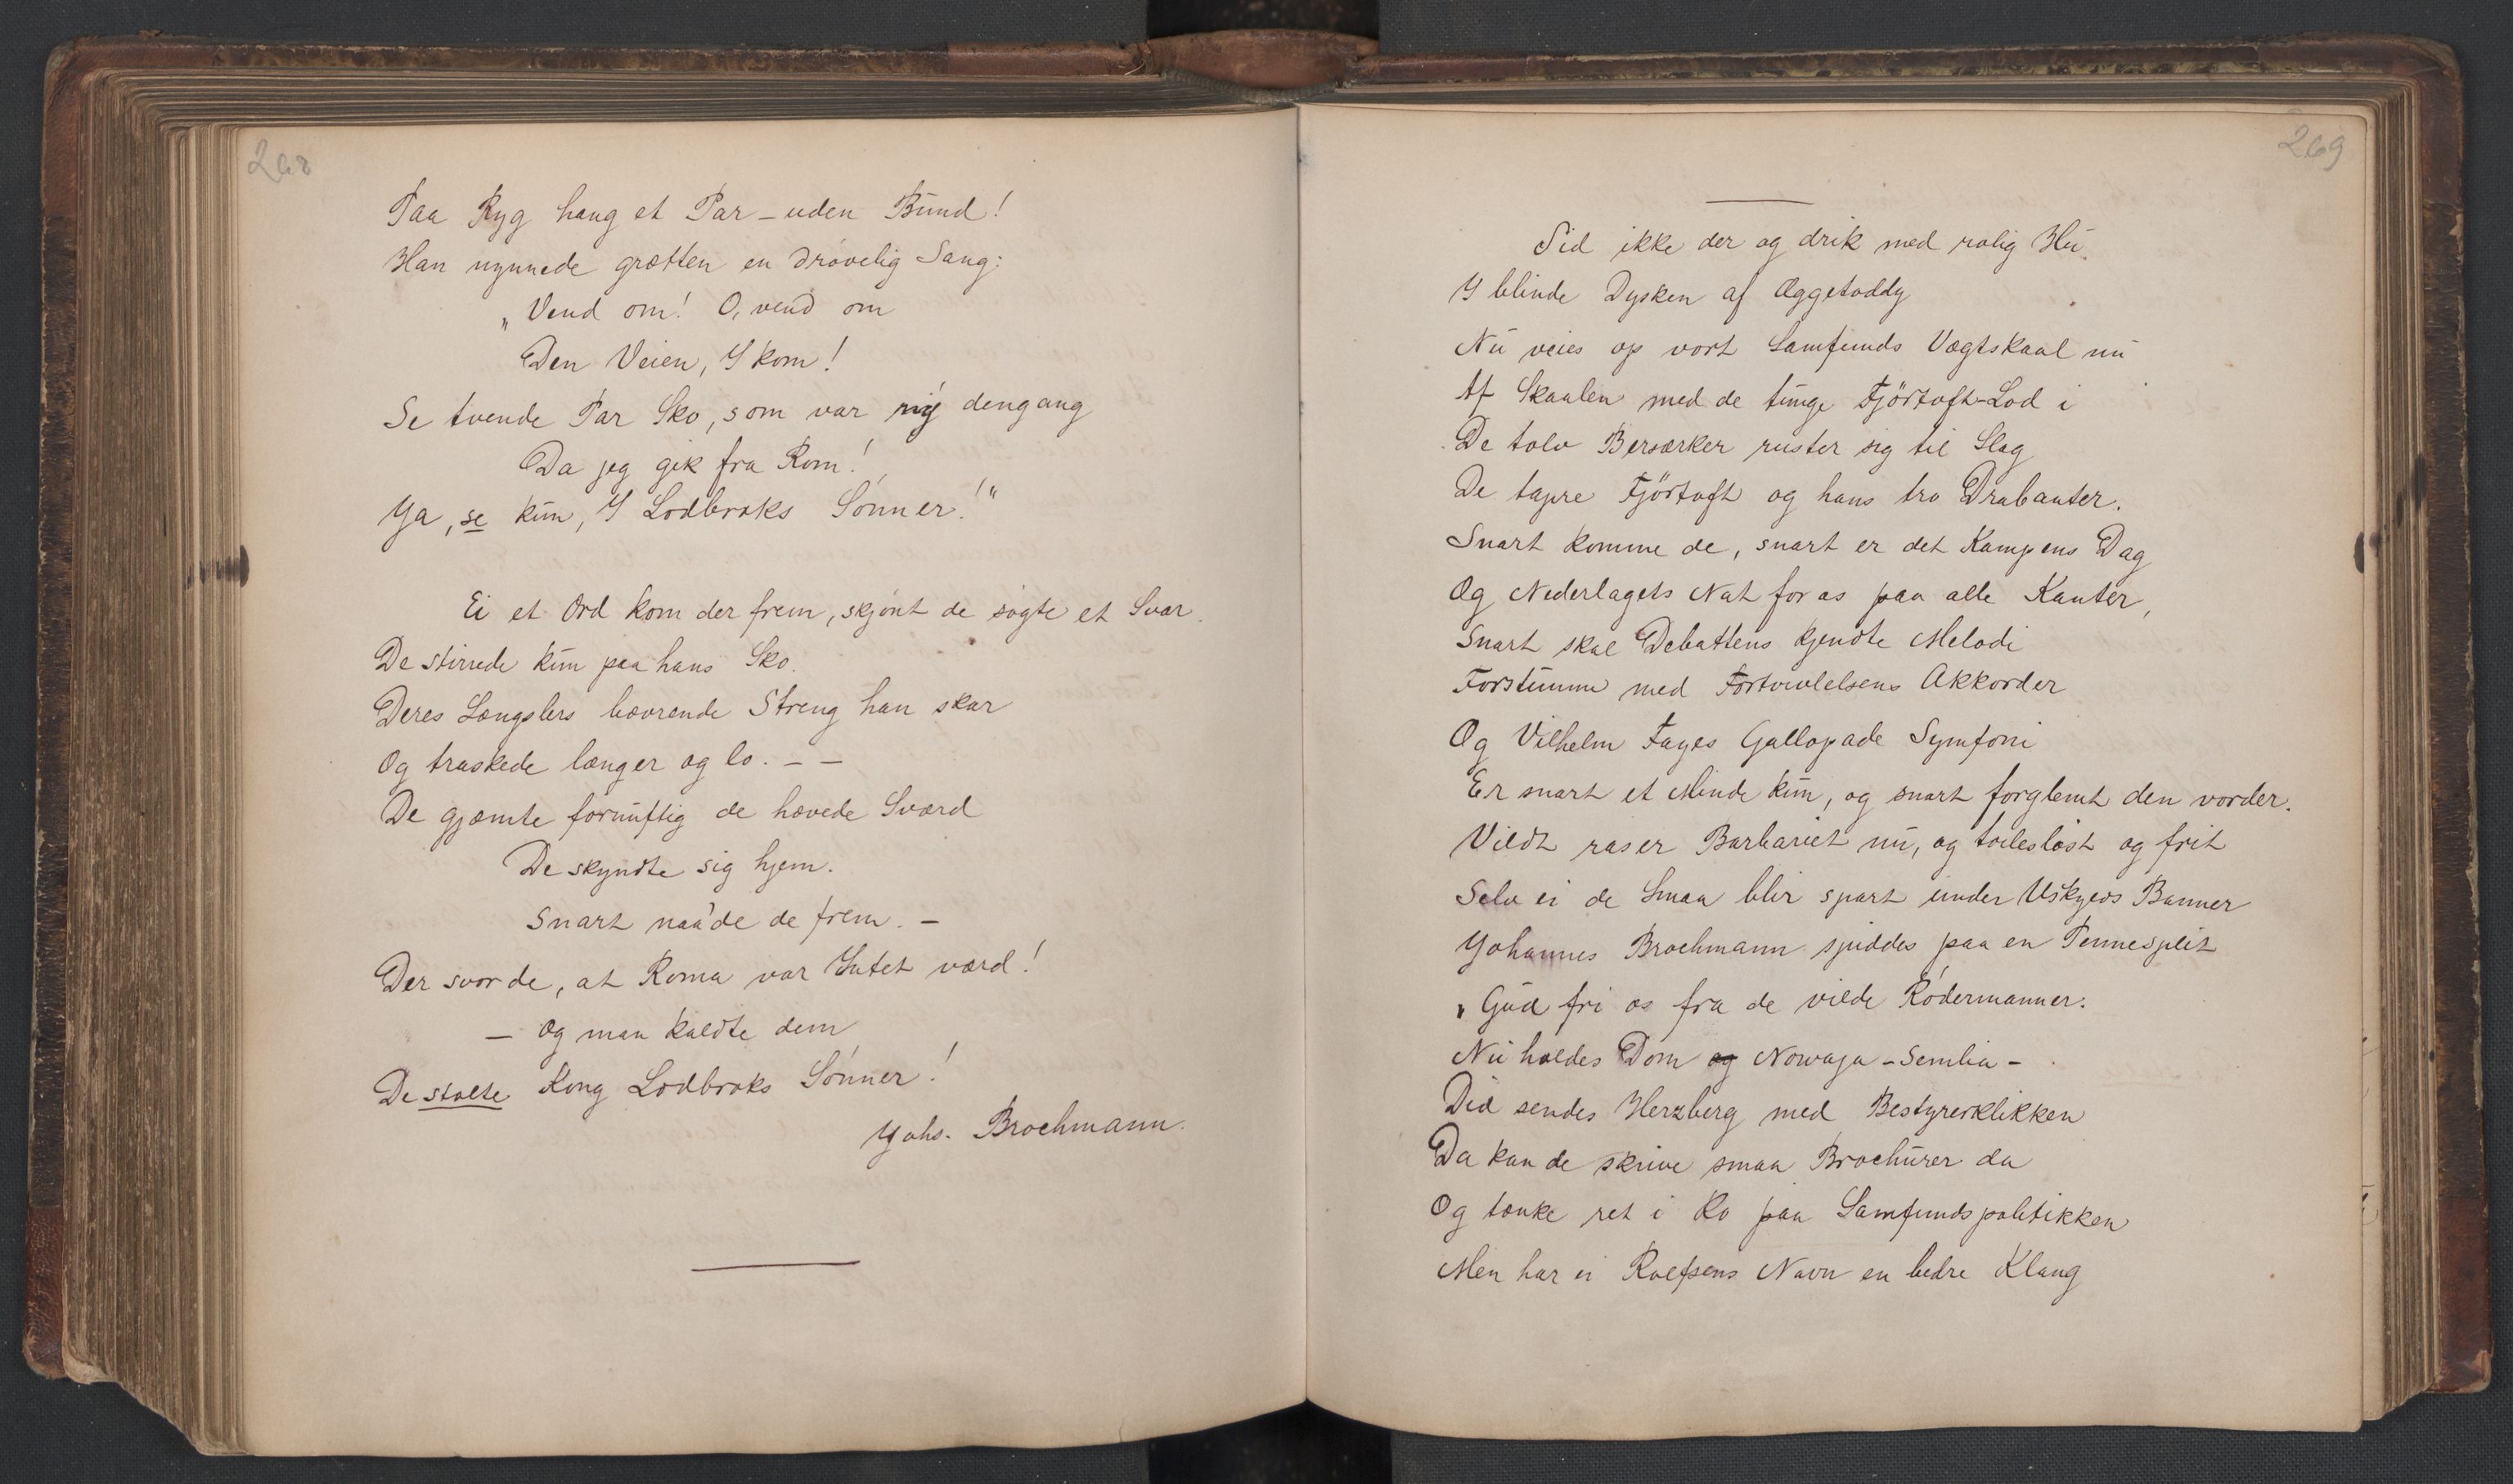 268
Paa Ryg hang et Par - uden Bund!
Han nynnede grætten en drøvelig Sang:
„Vend om! O, vend om
Den Veien, I kom!
Se tvende Par Sko, som var ny dengang
Da jeg gik fra Rom!
Ja, se kun, I Lodbroks Sønner!"
Ei et Ord kom der frem, skjønt de søgte et Svar.
De stirrede kun paa hans Sko.
Deres Længslers bævrende Streng han skar
Og traskede længer og lo. - -
De gjæmte fornuftig de hævede Sværd
De skyndte sig hjem.
Snart naa'de de frem. -
Der svor de, at Roma var Intet værd!
- Og man kaldte dem
De stolte Kong Lodbroks Sønner!
Johs. Brochmann.
269
Sid ikke der og drik med rolig Hu.
I blinde Dysken af Æggetoddy
Nu veies op vort Samfunds Vægtskaal nu
Af Skaalen med de tunge Fjörtoft-Lod i
De tolv Bersærker ruster sig til Slag
De tapre Fjörtoft og hans tro Drabanter.
Snart komme de, snart er det Kampens Dag
Og Nederlagets Nat for os paa alle Kanter,
Snart skal Debattens kjendte Melodi
Forstumme med Fortvivlelsens Akkorder
Og Vilhelm Fayes Gallopade Symfoni
Er snart et Minde kun, og snart forglemt den vorder.
Vildt raser Barbariet nu, og tøilesløst og frit
Selv ei de Smaa blir spart under Uskyeds Banner
Johannes Brochmann spiddes paa en Pennesplit
„Gud fri os fra de vilde Rødermanner.
Nu holdes Dom og Nowaja-Semlia -
Did sendes Herzberg med Bestyrerklikken
Da kan de skrive smaa Brochurer da
Og tænke ret i Ro paa Samfundspolitikken
Men har ei Roefsens Navn en bedre Klang